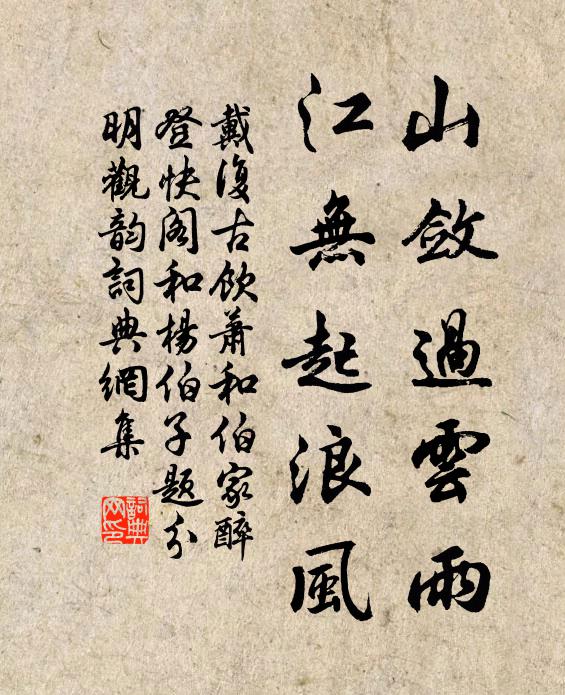 山斂過雲雨
江無起浪風
戴復古飲蕭和伯家醉
登快阁和楊伯子題分
明觀韵詞典網集
詞典
网印